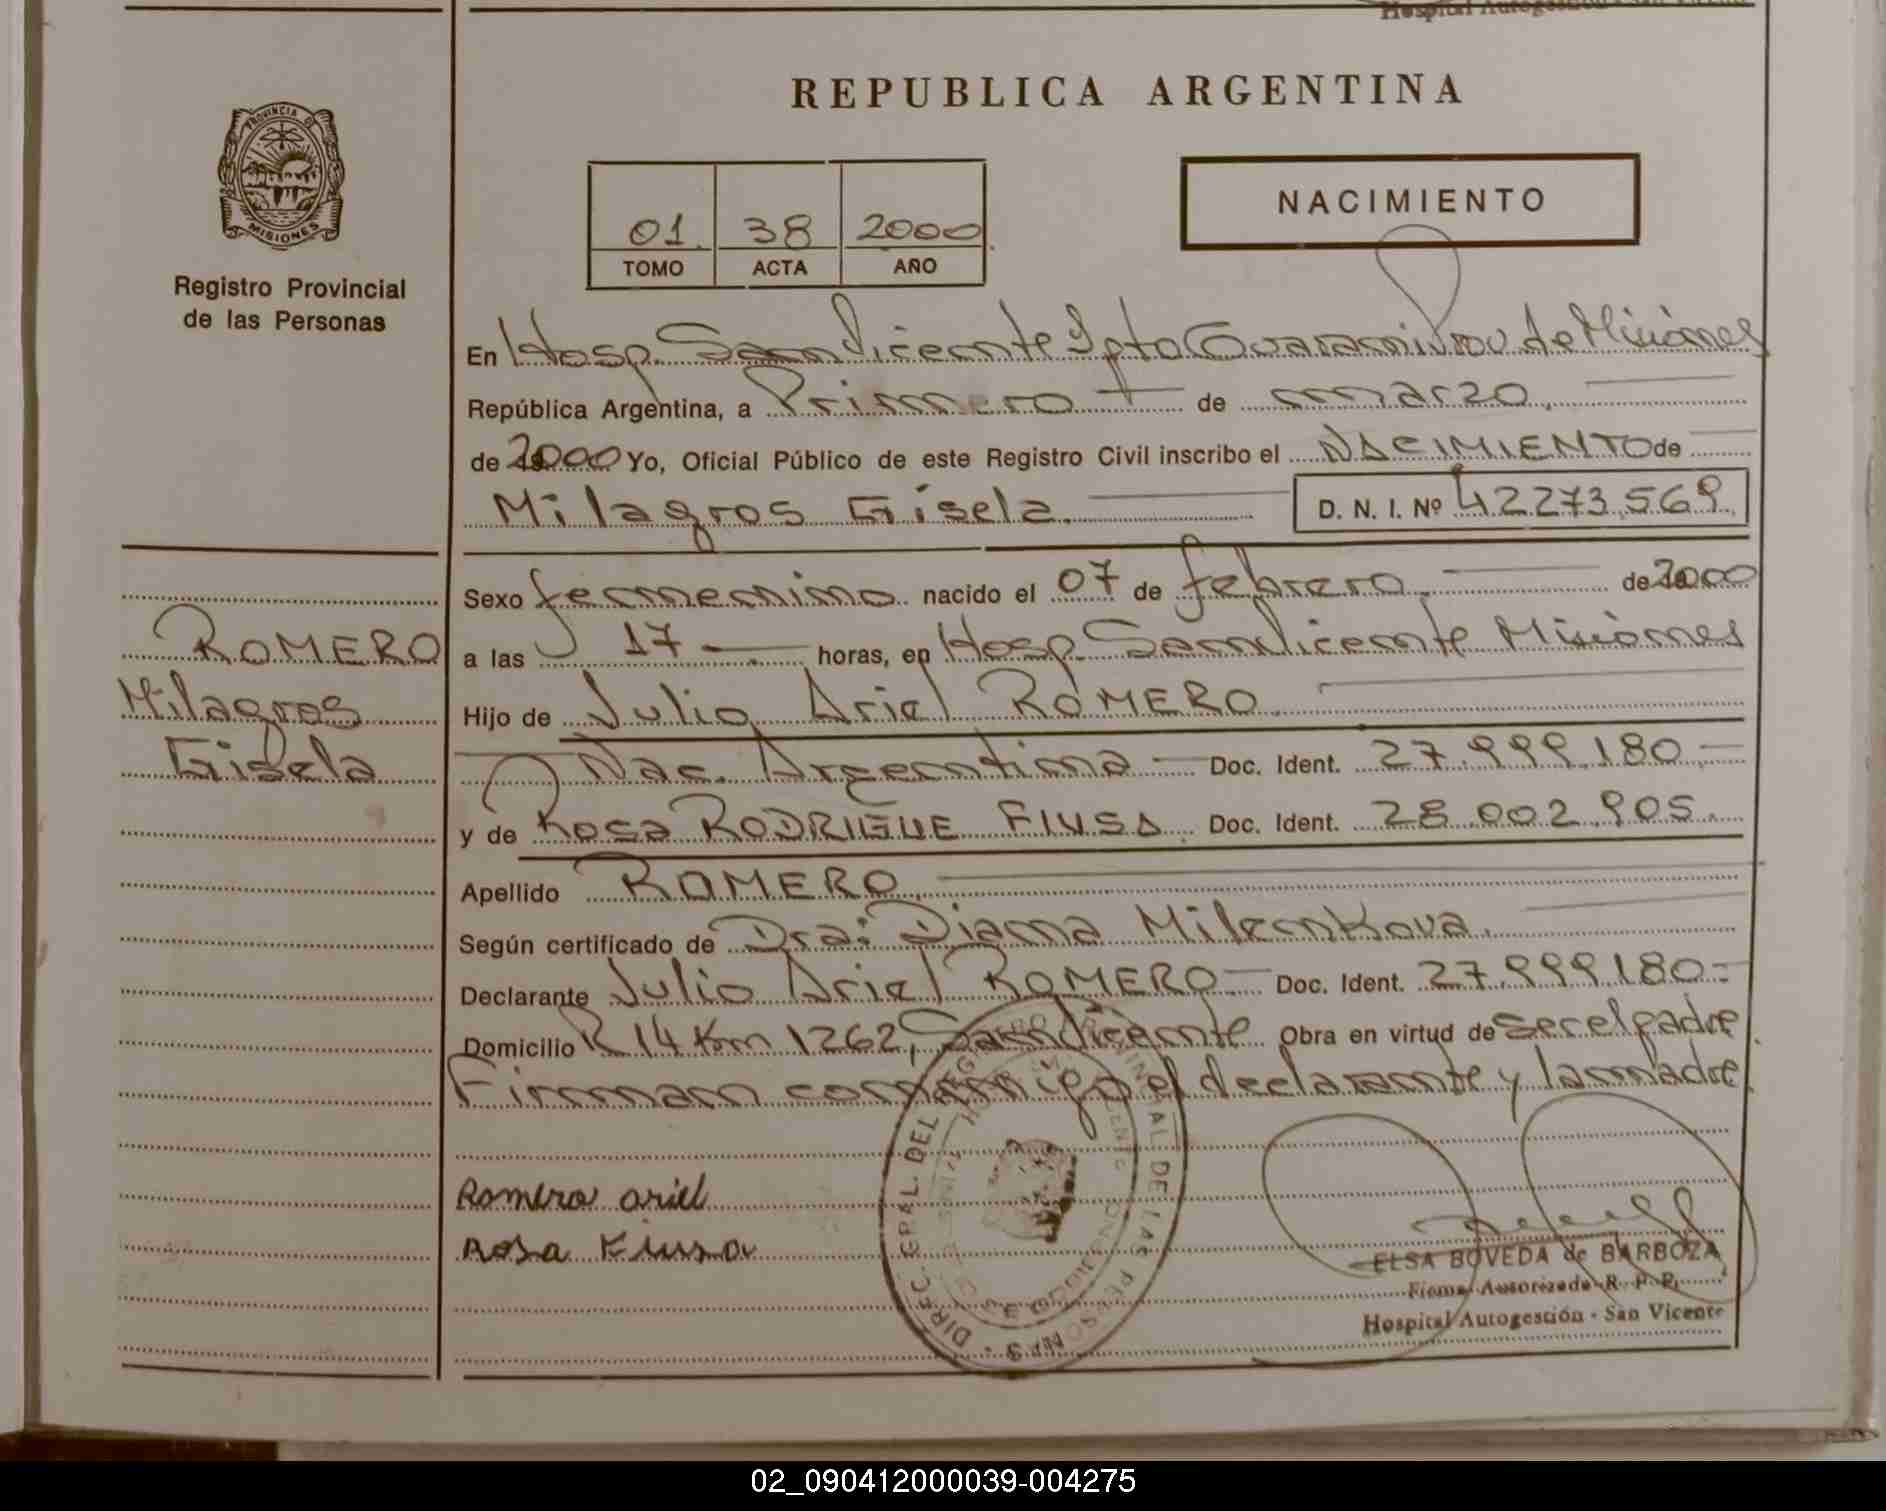 Hospital Autogestión - San Vicente
REPUBLICA ARGENTINA
PROVINCIA DE
MISIONES
Registro Provincial
de las Personas
01 38 2000
TOMO ACTA AÑO
NACIMIENTO
En Hosp. San Vicente Dpto Guaraní Prov. de Misiones
República Argentina, a Primero de marzo
de 2000 Yo, Oficial Público de este Registro Civil inscribo el NACIMIENTO de
Milagros Gisela. D. N. I. Nº 42273.569
Sexo femenino nacido el 07 de febrero de 2000
a las 17 horas, en Hosp. San Vicente Misiones
Hijo de Julio Ariel ROMERO
Nac. Argentina Doc. Ident. 27.999.180
y de Rosa RODRIGUE FIUSA Doc. Ident. 28.002.905.
Apellido ROMERO
Según certificado de Dra: Diana Milenkova.
Declarante Julio Ariel ROMERO Doc. Ident. 27.999.180
Domicilio R 14 Km 1262, San Vicente Obra en virtud de ser el padre
Firman conmigo el declarante y la madre
ROMERO
Milagros
Gisela
Romero ariel
Rosa Fiusa
DIREC. GRAL. DEL REGISTRO PROVINCIAL DE LAS PERSONAS
ELSA BOVEDA de BARBOZA
Firma Autorizada R. P. P.
Hospital Autogestión - San Vicente
02_090412000039-004275